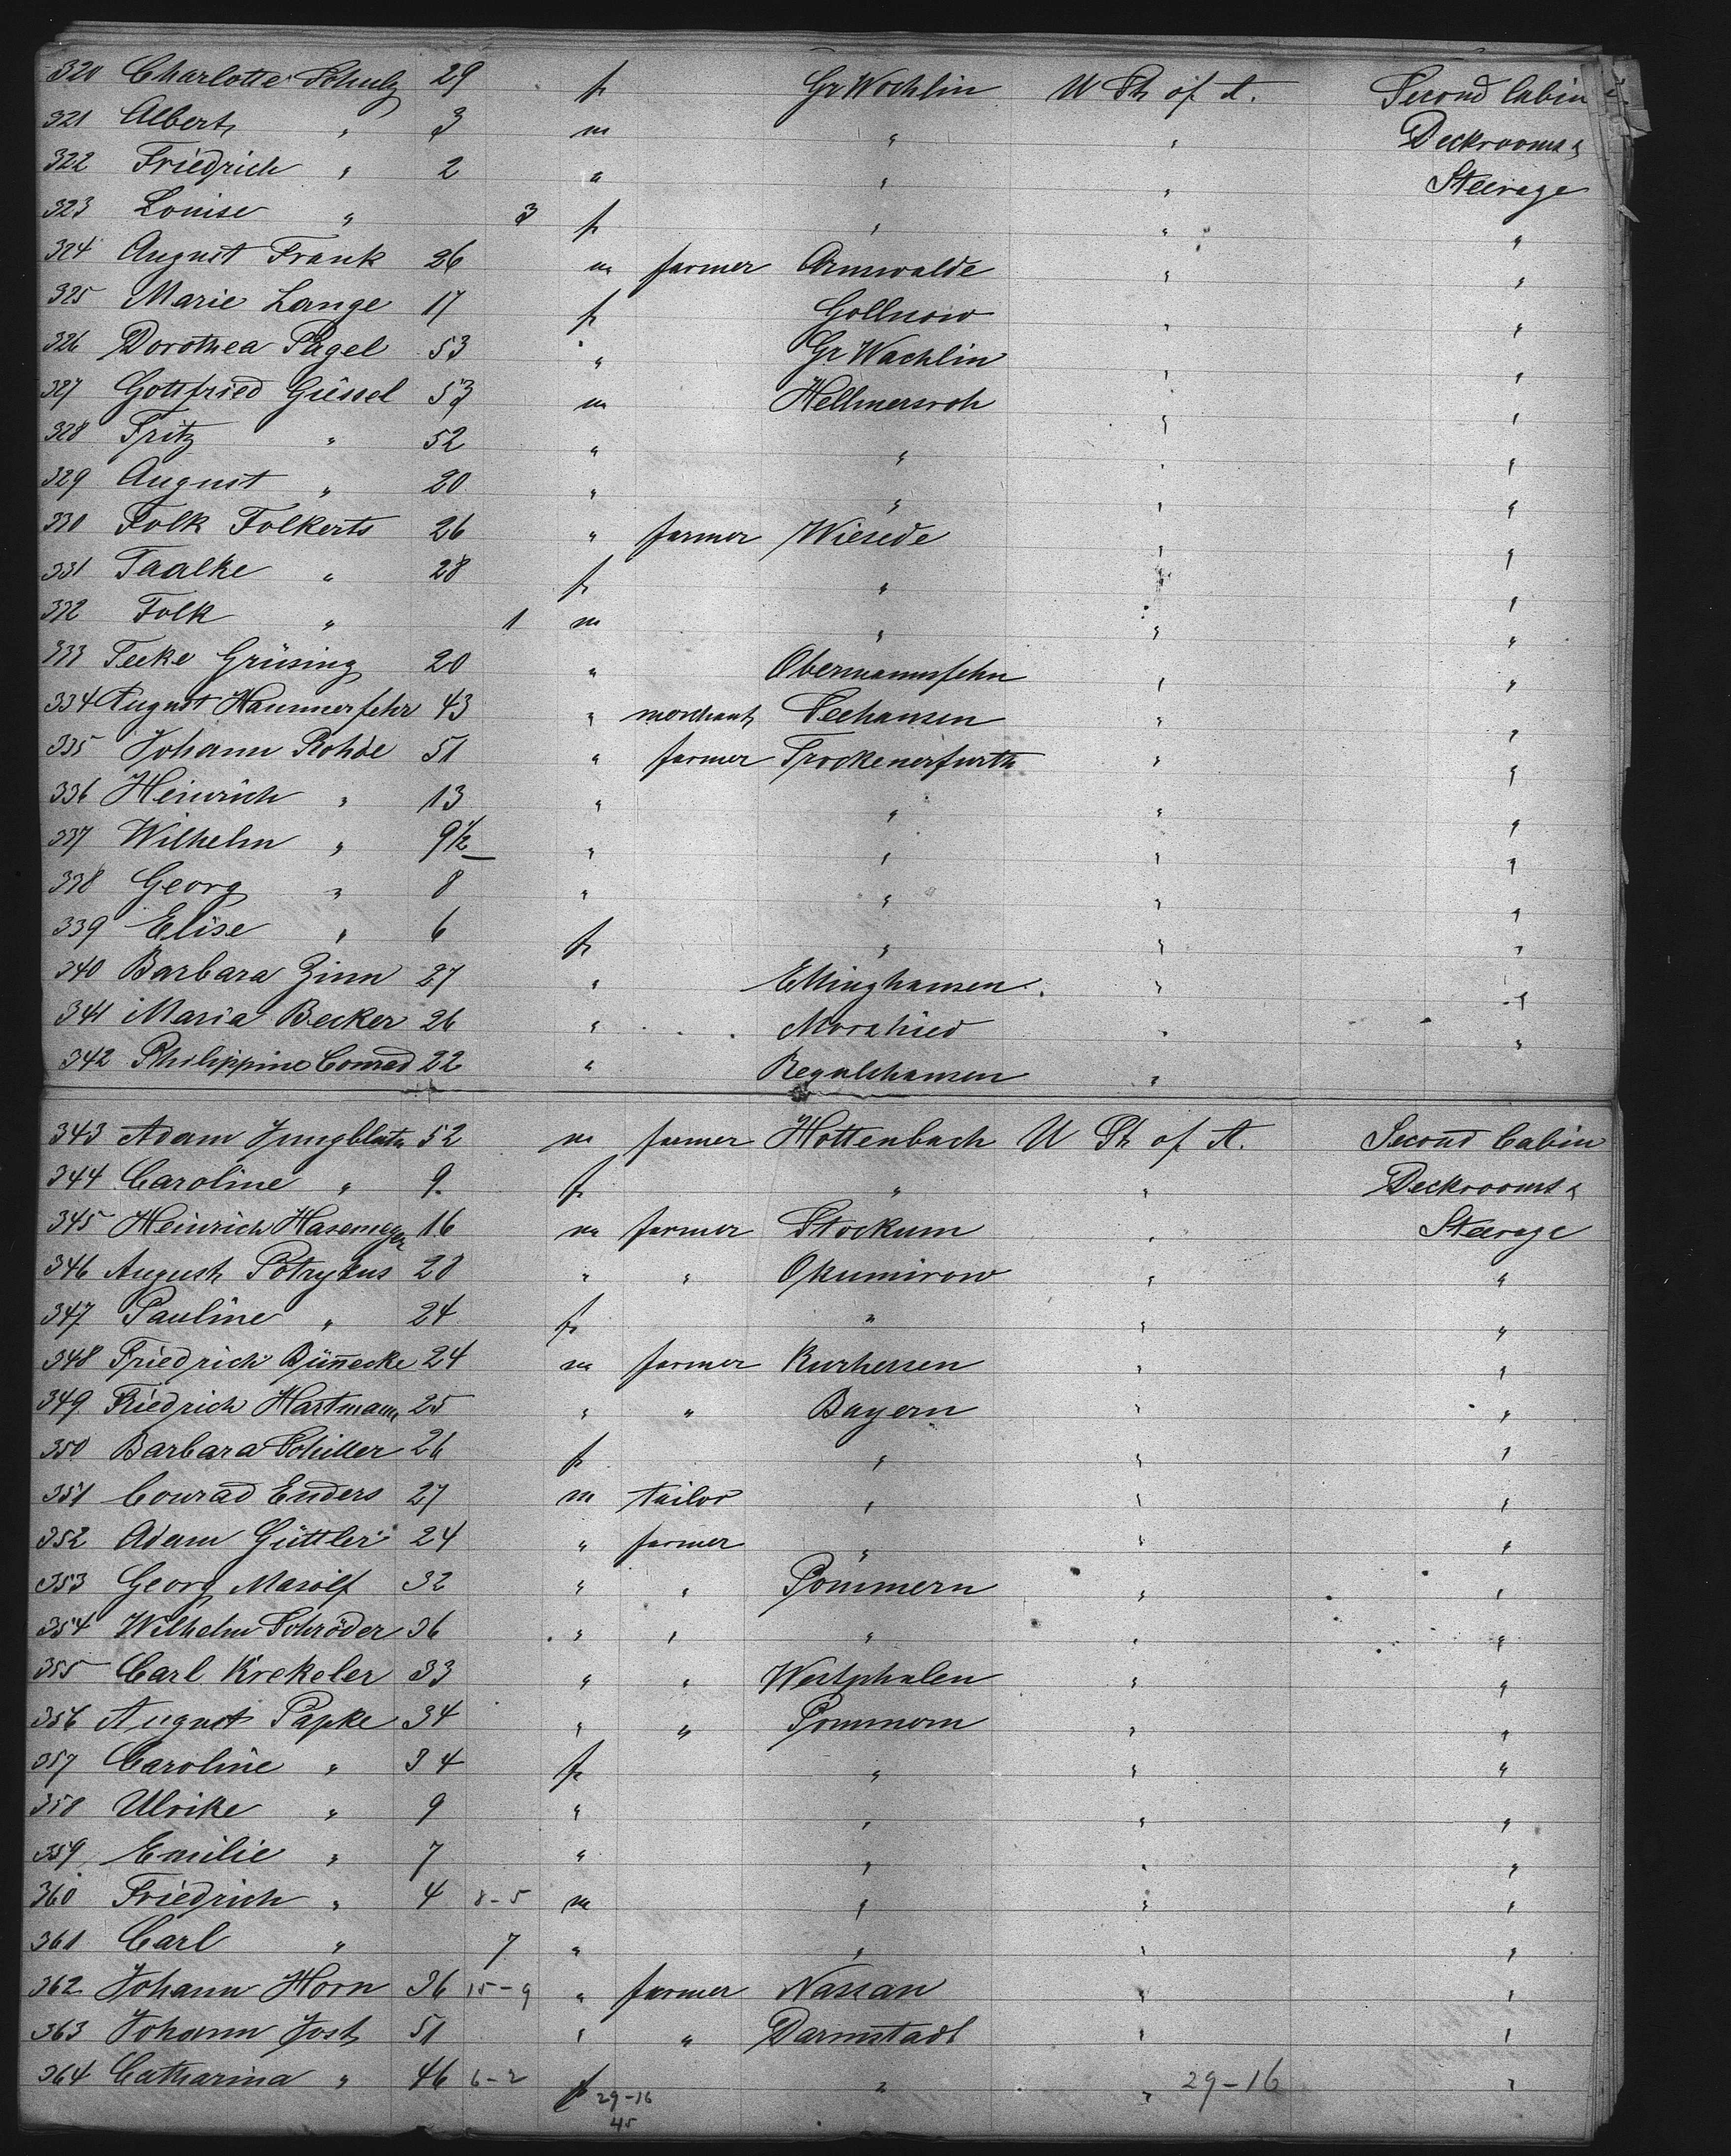 320 Charlotte Schulz 29 f Gr Wochlin U St of A. Second Cabin
321 Albert " 3 m " " Deckrooms &
322 Friedrich " 2 " " " Steerage
323 Louise " 3 f " " "
324 August Frank 26 m farmer Arnswalde " "
325 Marie Lange 17 f Gollnow " "
326 Dorothea Pagel 53 " Gr Wachlin " "
327 Gottfried Güssel 53 m " "
328 Fritz " 52 " " " "
329 August " 20 " " " "
330 Folk Folkerts 26 " farmer Wiesede " "
331 Taalke " 28 f " " "
332 Folk " 1 m " " "
333 Teeke Grüsing 20 " " "
334 August Hammerfehr 43 " merchant Seehausen " "
335 Johann Rohde 51 " farmer Trockenerfurth " "
336 Heinrich " 13 " " " "
337 Wilhelm " 9 1/2 " " " "
338 Georg " 8 " " " "
339 Elise " 6 f " " "
340 Barbara Zinn 27 " Ellinghausen " "
341 Maria Becker 26 " " "
342 Philippine Conrad 22 " "
343 Adam Jungbluth 52 m farmer Hottenbach U St of A. Second Cabin
344 Caroline " 9. f " " Deckrooms &
345 Heinrich Hasemeyer 16 m farmer Stockum " Steerage
346 August Potrykus 28 " " Okumirow " "
347 Pauline " 24 f " " "
348 Friedrich Bünnecke 24 m farmer Kurhessen " "
349 Friedrich Hartmann 25 " " Bayern " "
350 Barbara Schiller 26 f " " "
351 Conrad Enders 27 m tailor " " "
352 Adam Güttler 24 " farmer " " "
353 Georg Marolf 32 " " Pommern " "
354 Wilhelm Schröder 36 " " " " "
355 Carl Krekeler 33 " " Westphalen " "
356 August Papke 34 " " Pommern " "
357 Caroline " 34 f " " "
358 Ulrike " 9 " " " "
359 Emilie " 7 " " " "
360 Friedrich " 4 8-5 m " " "
361 Carl " 7 " " " "
362 Johann Horn 36 15-9 " farmer Nassau " "
363 Johann Jost 51 " " Darmstadt " "
364 Catharina " 46 6-2 f 29-16 " " 29-16 "
45